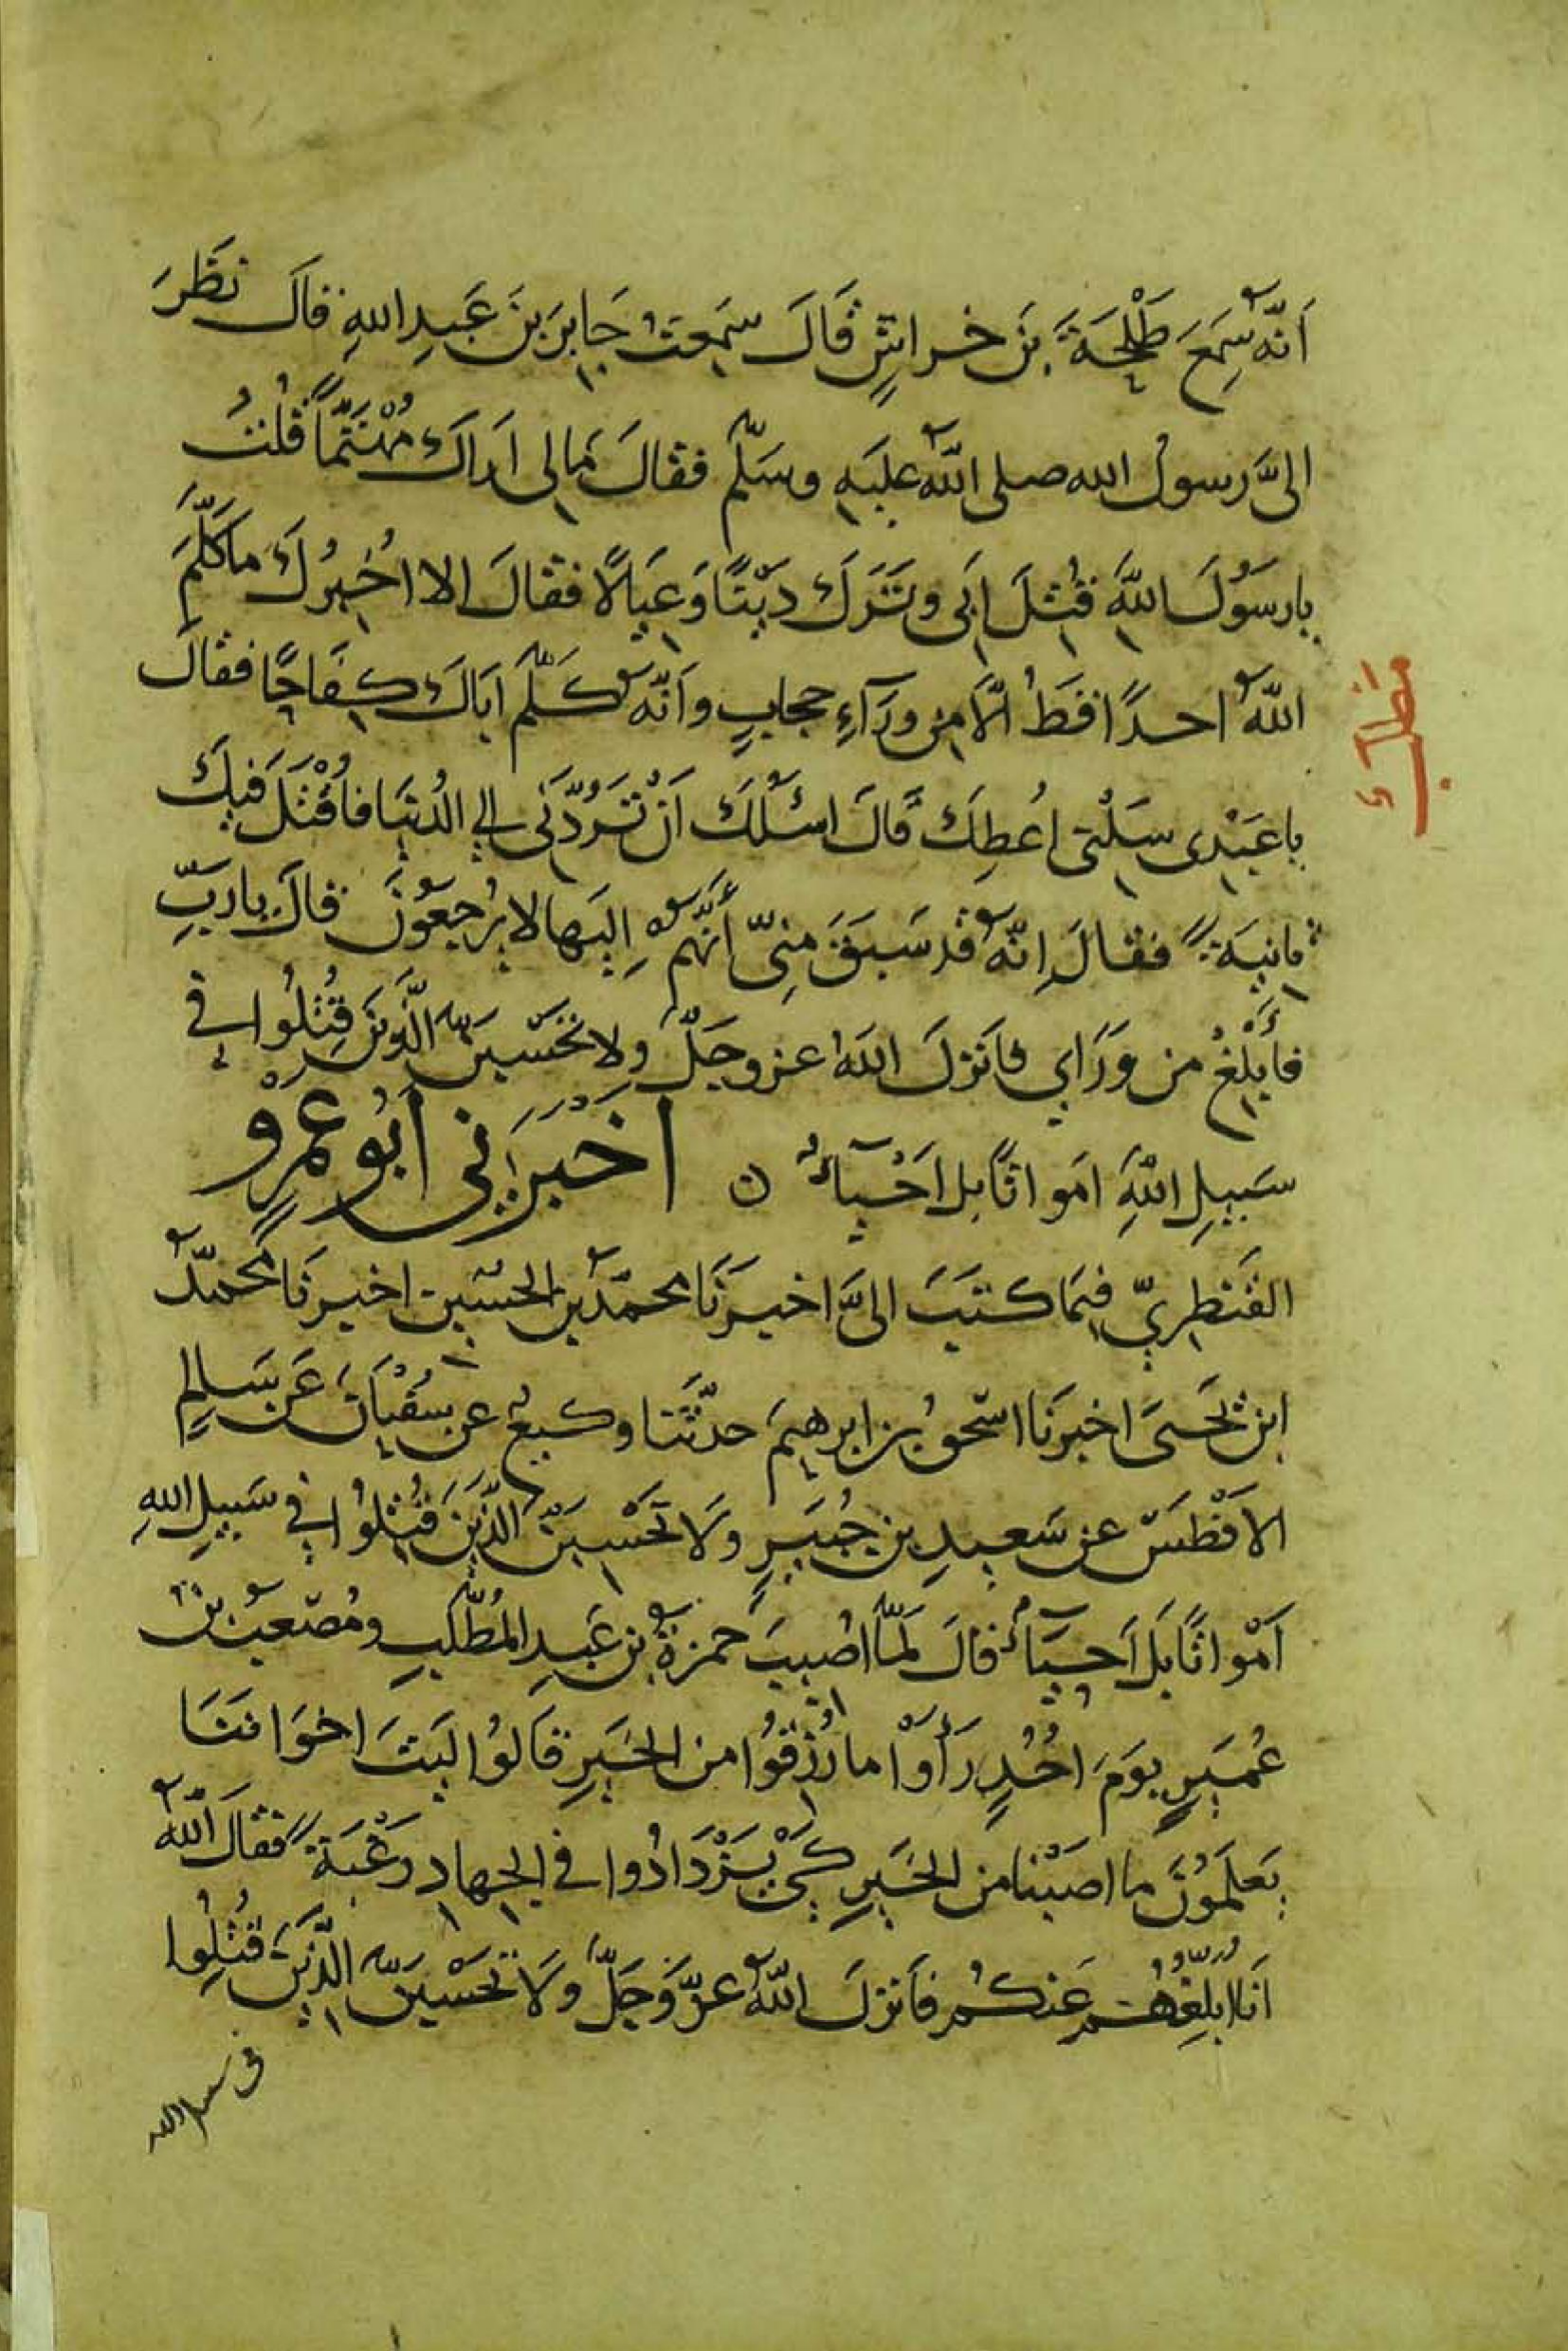 اَنّهُ سَمِعَ طَلْحَةَ بنَ خراشٍ قَالَ سَمِعتُ جَابرَ بنَ عَبدِ اللهِ قالَ نَظَرَ
الىَّ رسولُ الله صلى اللهُ عليَهِ وسَلّم فقالَ مَا لى اَراكَ مُهْتَمًّا قُلتُ
يا رسَوُلَ اللهَِ قُتِلَ اَبى وتَرَكَ دَيْنًا وَعيَالًا فقالَ الا اُخبرُكَ ما كَلَّمَ
اللهُ احدًا قَطُ الّاَ من وَرَآءِ حجابٍ واَنّهُ كَلّمَ اَباكَ كِفَاحًا فقالَ
يا عَبْدى سَلْنى اُعطِكَ قَالَ اسْئلُكَ اَنْ تَرُدَّنى الي الدُنيَا فأُقْتَلَ فيكَ
ثانِيَةً فقالَ اِنّهُ قد سَبَقَ منِىّ أَنّهُمْ اِليَها لا يُرْجَعوُنَ قالَ يا رَبِّ
فأَبْلِغْ من وَرَاي فانَزلَ اللهُ عز وجَلّ ولا تحَسَبنَّ الذَّينَ قُتِلُوا في
سَبيلِ اللهِ اَمَواتًا بل اَحْيآءٌ ن اَخبَرَني اَبُو عَمْرٍو
القَنَطِريّ فيمَا كتبَ الىَّ اخبَرنَا محمّدُ بن الحسَينِ اخبرنَا محمّدُ
ابن يَحَيىَ اخبرَنَا اسحقُ بن ابرهيمَ حدثَنَا وكيعٌ عن سُفْيَانَ عَن سَالِمٍ
الاَفْطَسِ عن سَعيدِ بن جُبيَرٍ وَلا تَحْسَبَنّ الذّينَ قُتِلُوا في سَبيلِ اللهِ
اَمْواتًا بَل اَحيَآءٌ قالَ لَمّا اصُيبَ حمزةُ بن عَبدِ المُطّلبِ ومُصعَبُ بن
عُمَيرٍ يوَمَ اُحُدٍ رَأَوْا ما رُزِقُوا من الخَيرِ قَالوُا ليَتَ اخوَانَنَا
يَعلَمَوُنَ ما اصَبْنا من الخَيرِ كَىْ يَزْدَادُوا في الجهادِ رَغْبَةً فقالَ اللهُ
اَنا ابلّغُهُم عَنكُم فأنزلَ اللهُ عزَّ وَجَلّ وَلا تَحْسَبنَّ الذّينَ قُتِلُوا
في سبيل الله
مطلب